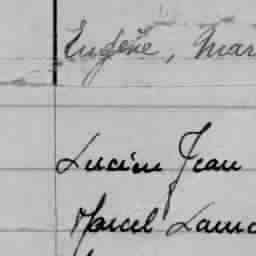 Eugène, Mar
Lucien Jean
Marcel Laur